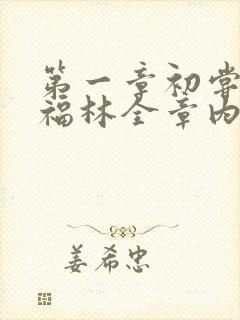 第一章初尝
福林全章内
姜希忠